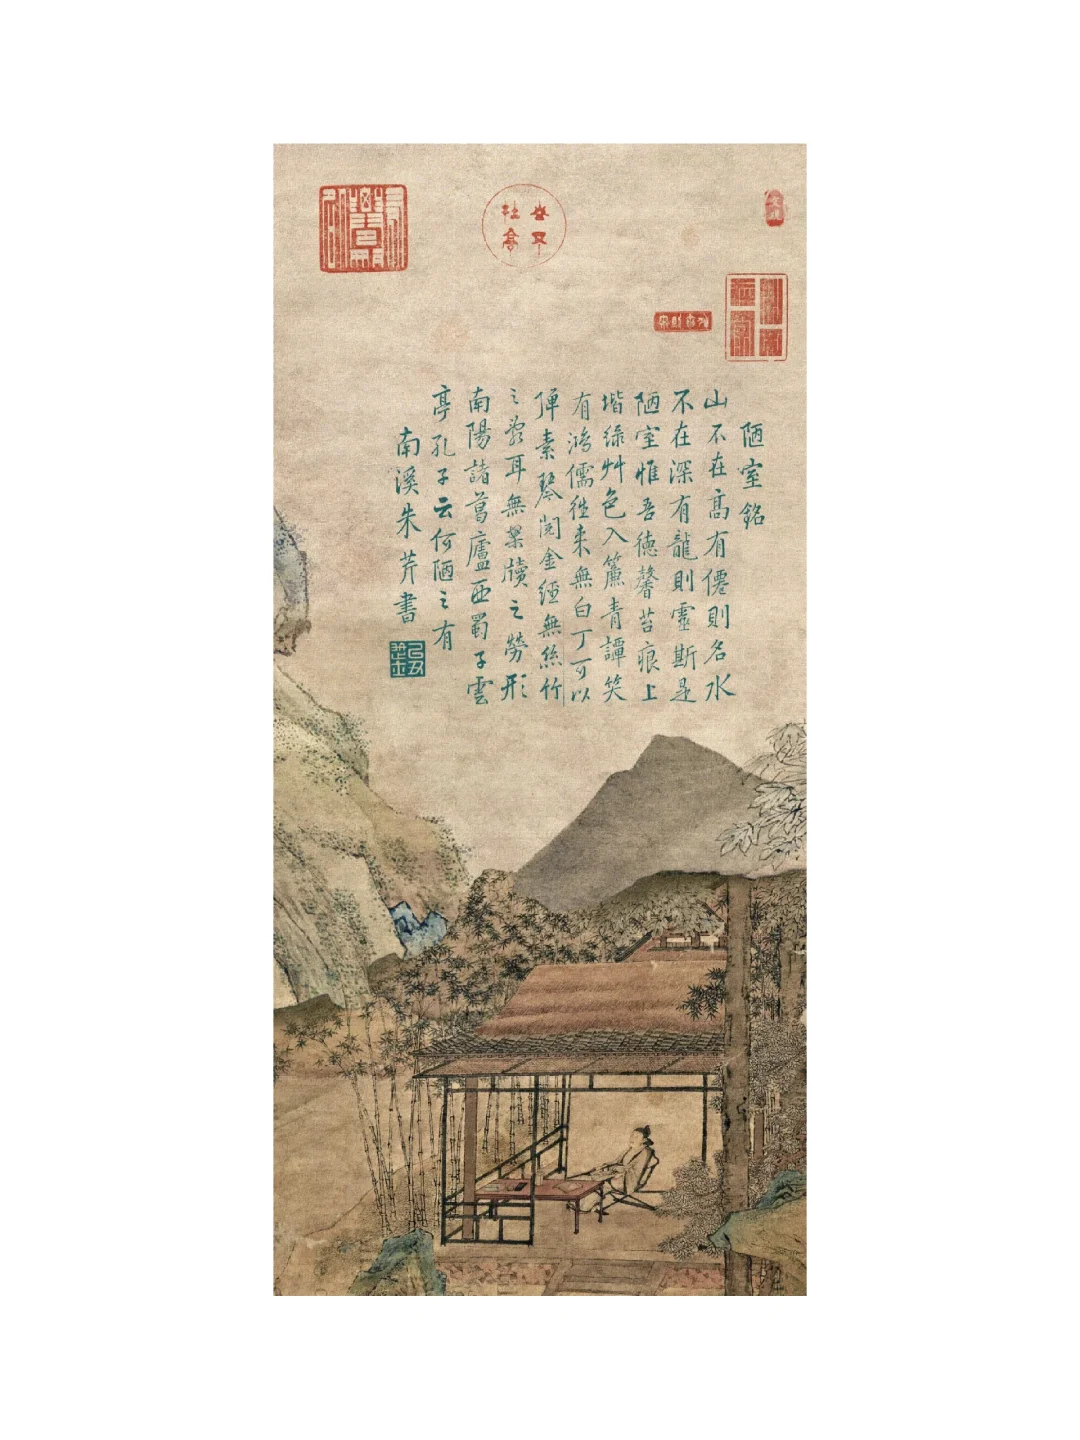 陋室銘
山不在髙有僊則名水
不在深有龍則靈斯是
陋室惟吾德馨苔痕上
堦綠艸色入簾青譚笑
有鴻儒往来無白丁可以
彈素琴閱金經無絲竹
之亂耳無案牘之勞形
南陽諸葛廬西蜀子雲
亭孔子云何陋之有
南溪朱芹書